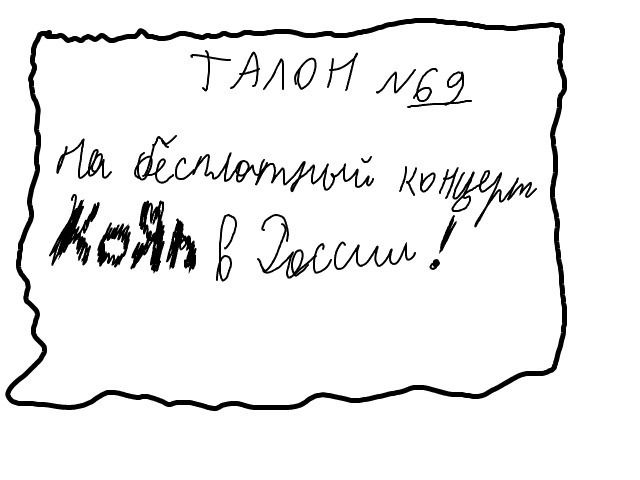 ТАЛОН №69
На бесплатный концерт
КоЯn в России!